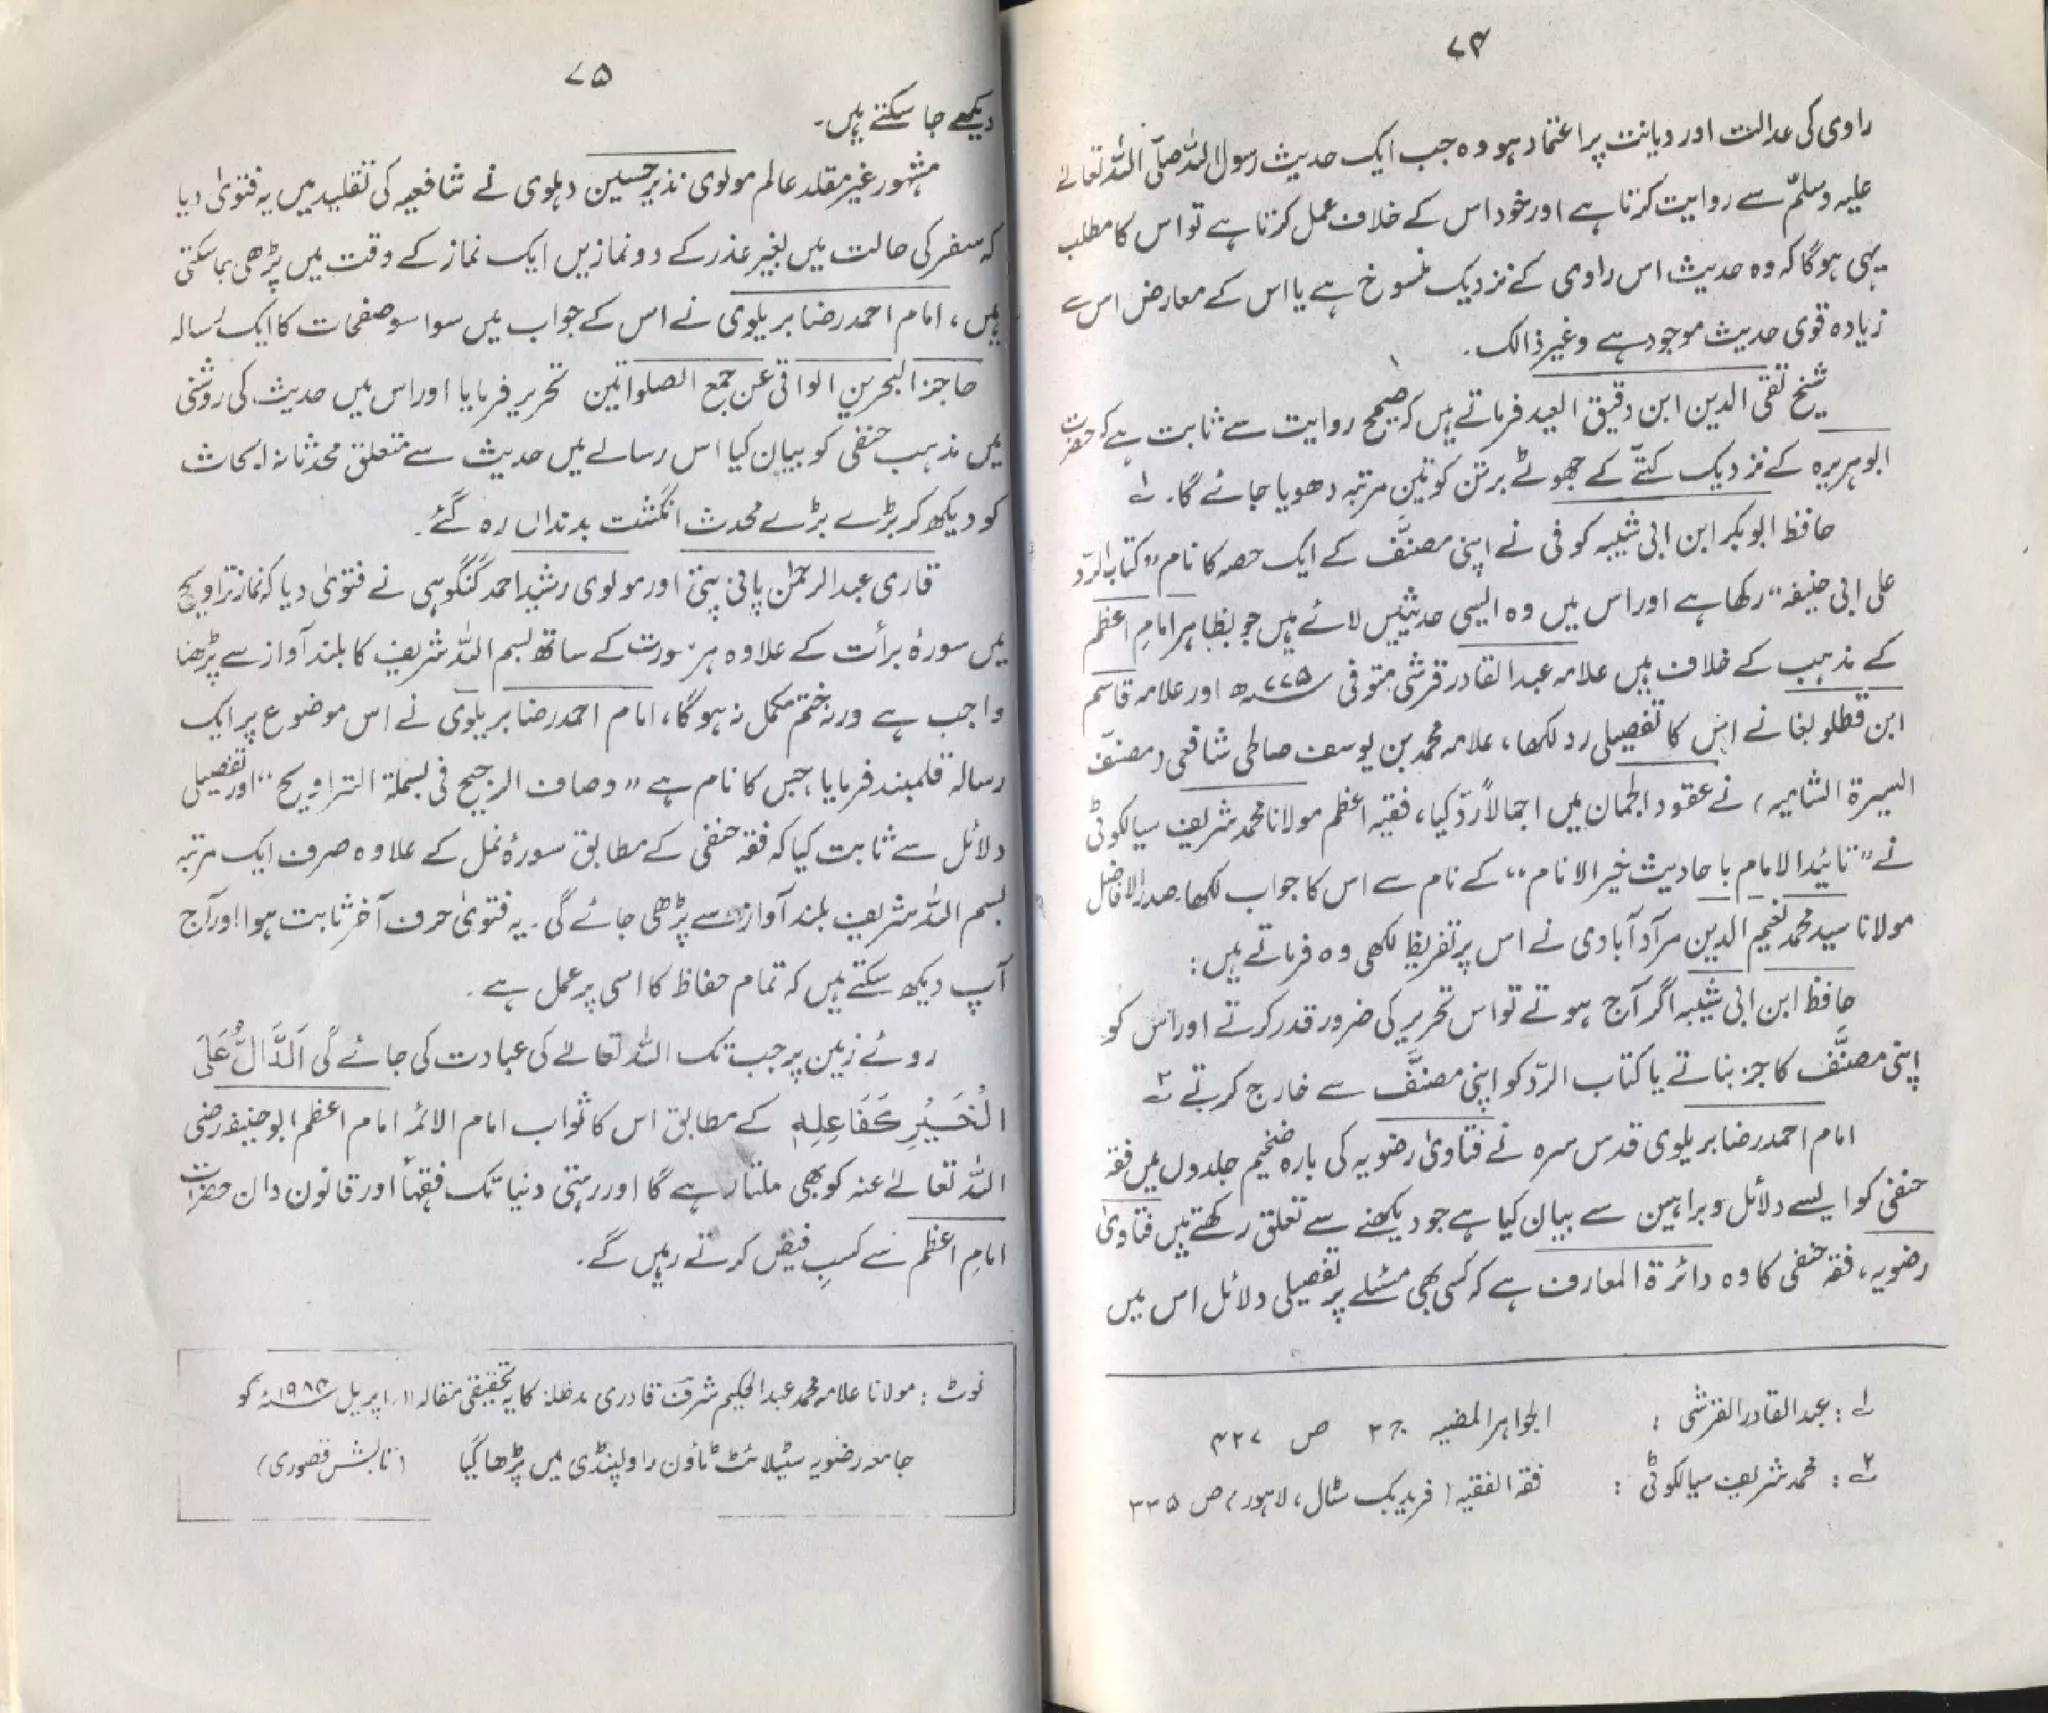 ۷۴
راوی کی عدالت اور دیانت پر اعتماد ہو وہ جب ایک حدیث رسول اللہ صلّی اللہ تعالےٰ
علیہ وسلّم سے روایت کرتا ہے اور خود اس کے خلاف عمل کرتا ہے تو اس کا مطلب
یہی ہوگا کہ وہ حدیث اس راوی کے نزدیک منسوخ ہے یا اس کے معارض اس سے
زیادہ قوی حدیث موجود ہے وغیر ذالک۔
شیخ تقی الدین ابن دقیق العید فرماتے ہیں کہ صحیح روایت سے ثابت ہے کہ حضرت
ابوہریرہ کے نزدیک کتّے کے جھوٹے برتن کو تین مرتبہ دھویا جائے گا۔ ۱؎
حافظ ابوبکر ابن ابی شیبہ کوفی نے اپنی مصنَّف کے ایک حصہ کا نام ”کتاب الرّد
علی ابی حنیفہ“ رکھا ہے اور اس میں وہ ایسی حدیثیں لائے ہیں جو بظاہر امامِ اعظم
کے مذہب کے خلاف ہیں علامہ عبدالقادر قرشی متوفی ۷۷۵ھ اور علامہ قاسم
ابن قطلوبغا نے اس کا تفصیلی رد لکھا، علامہ محمد بن یوسف صالحی شافعی (مصنّف
السیرة الشامیہ) نے عقود الجمان میں اجمالاً ردّ کیا، فقیہ اعظم مولانا محمد شریف سیالکوٹی
نے ”تائید الامام باحادیث خیر الانام“ کے نام سے اس کا جواب لکھا۔ صدر الافاضل
مولانا سید محمد نعیم الدین مرادآبادی نے اس پر تقریظ لکھی وہ فرماتے ہیں:
حافظ ابن ابی شیبہ اگر آج ہوتے تو اس تحریر کی ضرور قدر کرتے اور اس کو
اپنی مصنَّف کا جز بناتے یا کتاب الردّ کو اپنی مصنَّف سے خارج کرتے ۲؎
امام احمد رضا بریلوی قدس سرہ نے فتاویٰ رضویہ کی بارہ ضخیم جلدوں میں فقہ
حنفی کو ایسے دلائل و براہین سے بیان کیا ہے جو دیکھنے سے تعلق رکھتے ہیں فتاویٰ
رضویہ، فقہ حنفی کا وہ دائرة المعارف ہے کہ کسی بھی مسئلے پر تفصیلی دلائل اس میں
۱؎: عبدالقادر القرشی: الجواہر المضیہ ج۲ ص ۴۲۷
۲؎: محمد شریف سیالکوٹی: فقہ الفقیہ (فرید بک سٹال، لاہور) ص ۳۳۵
۷۵
دیکھے جا سکتے ہیں۔
مشہور غیر مقلد عالم مولوی نذیر حسین دہلوی نے شافعیہ کی تقلید میں یہ فتویٰ دیا
کہ سفر کی حالت میں بغیر عذر کے دو نمازیں ایک نماز کے وقت میں پڑھی جا سکتی
ہیں، امام احمد رضا بریلوی نے اس کے جواب میں سوا سو صفحات کا ایک رسالہ
حاجز البحرین الواقی عن جمع الصلواتین تحریر فرمایا اور اس میں حدیث کی روشنی
میں مذہب حنفی کو بیان کیا اس رسالے میں حدیث سے متعلق محدثانہ ابحاث
کو دیکھ کر بڑے بڑے محدث انگشت بدنداں رہ گئے۔
قاری عبدالرحمٰن پانی پتی اور مولوی رشید احمد گنگوہی نے فتویٰ دیا کہ نماز تراویح
میں سورۂ برأت کے علاوہ ہر سورت کے ساتھ بسم اللہ شریف کا بلند آواز سے پڑھنا
واجب ہے ورنہ ختم مکمل نہ ہوگا، امام احمد رضا بریلوی نے اس موضوع پر ایک
رسالہ قلمبند فرمایا جس کا نام ہے ”وصاف الرجیح فی بسملة التراویح“ اور تفصیلی
دلائل سے ثابت کیا کہ فقہ حنفی کے مطابق سورۂ نمل کے علاوہ صرف ایک مرتبہ
بسم اللہ شریف بلند آواز سے پڑھی جائے گی۔ یہ فتویٰ حرف آخر ثابت ہوا اور آج
آپ دیکھ سکتے ہیں کہ تمام حفاظ کا اسی پر عمل ہے۔
روئے زمین پر جب تک اللہ تعالےٰ کی عبادت کی جائے گی اَلدَّالُّ عَلَی
الْخَیْرِ کَفَاعِلِہٖ کے مطابق اس کا ثواب امام الائمہ امام اعظم ابوحنیفہ رضی
اللہ تعالےٰ عنہ کو بھی ملتا رہے گا اور رہتی دنیا تک فقہاً اور قانون دان حضرات
امامِ اعظم سے کسبِ فیض کرتے رہیں گے۔
نوٹ: مولانا علامہ محمد عبدالحکیم شرف قادری مدظلہٗ کا یہ تحقیقی مقالہ ۱۱؍ اپریل ۱۹۸۴ء کو
جامعہ رضویہ سٹیلائٹ ٹاؤن راولپنڈی میں پڑھا گیا (تابش قصوری)